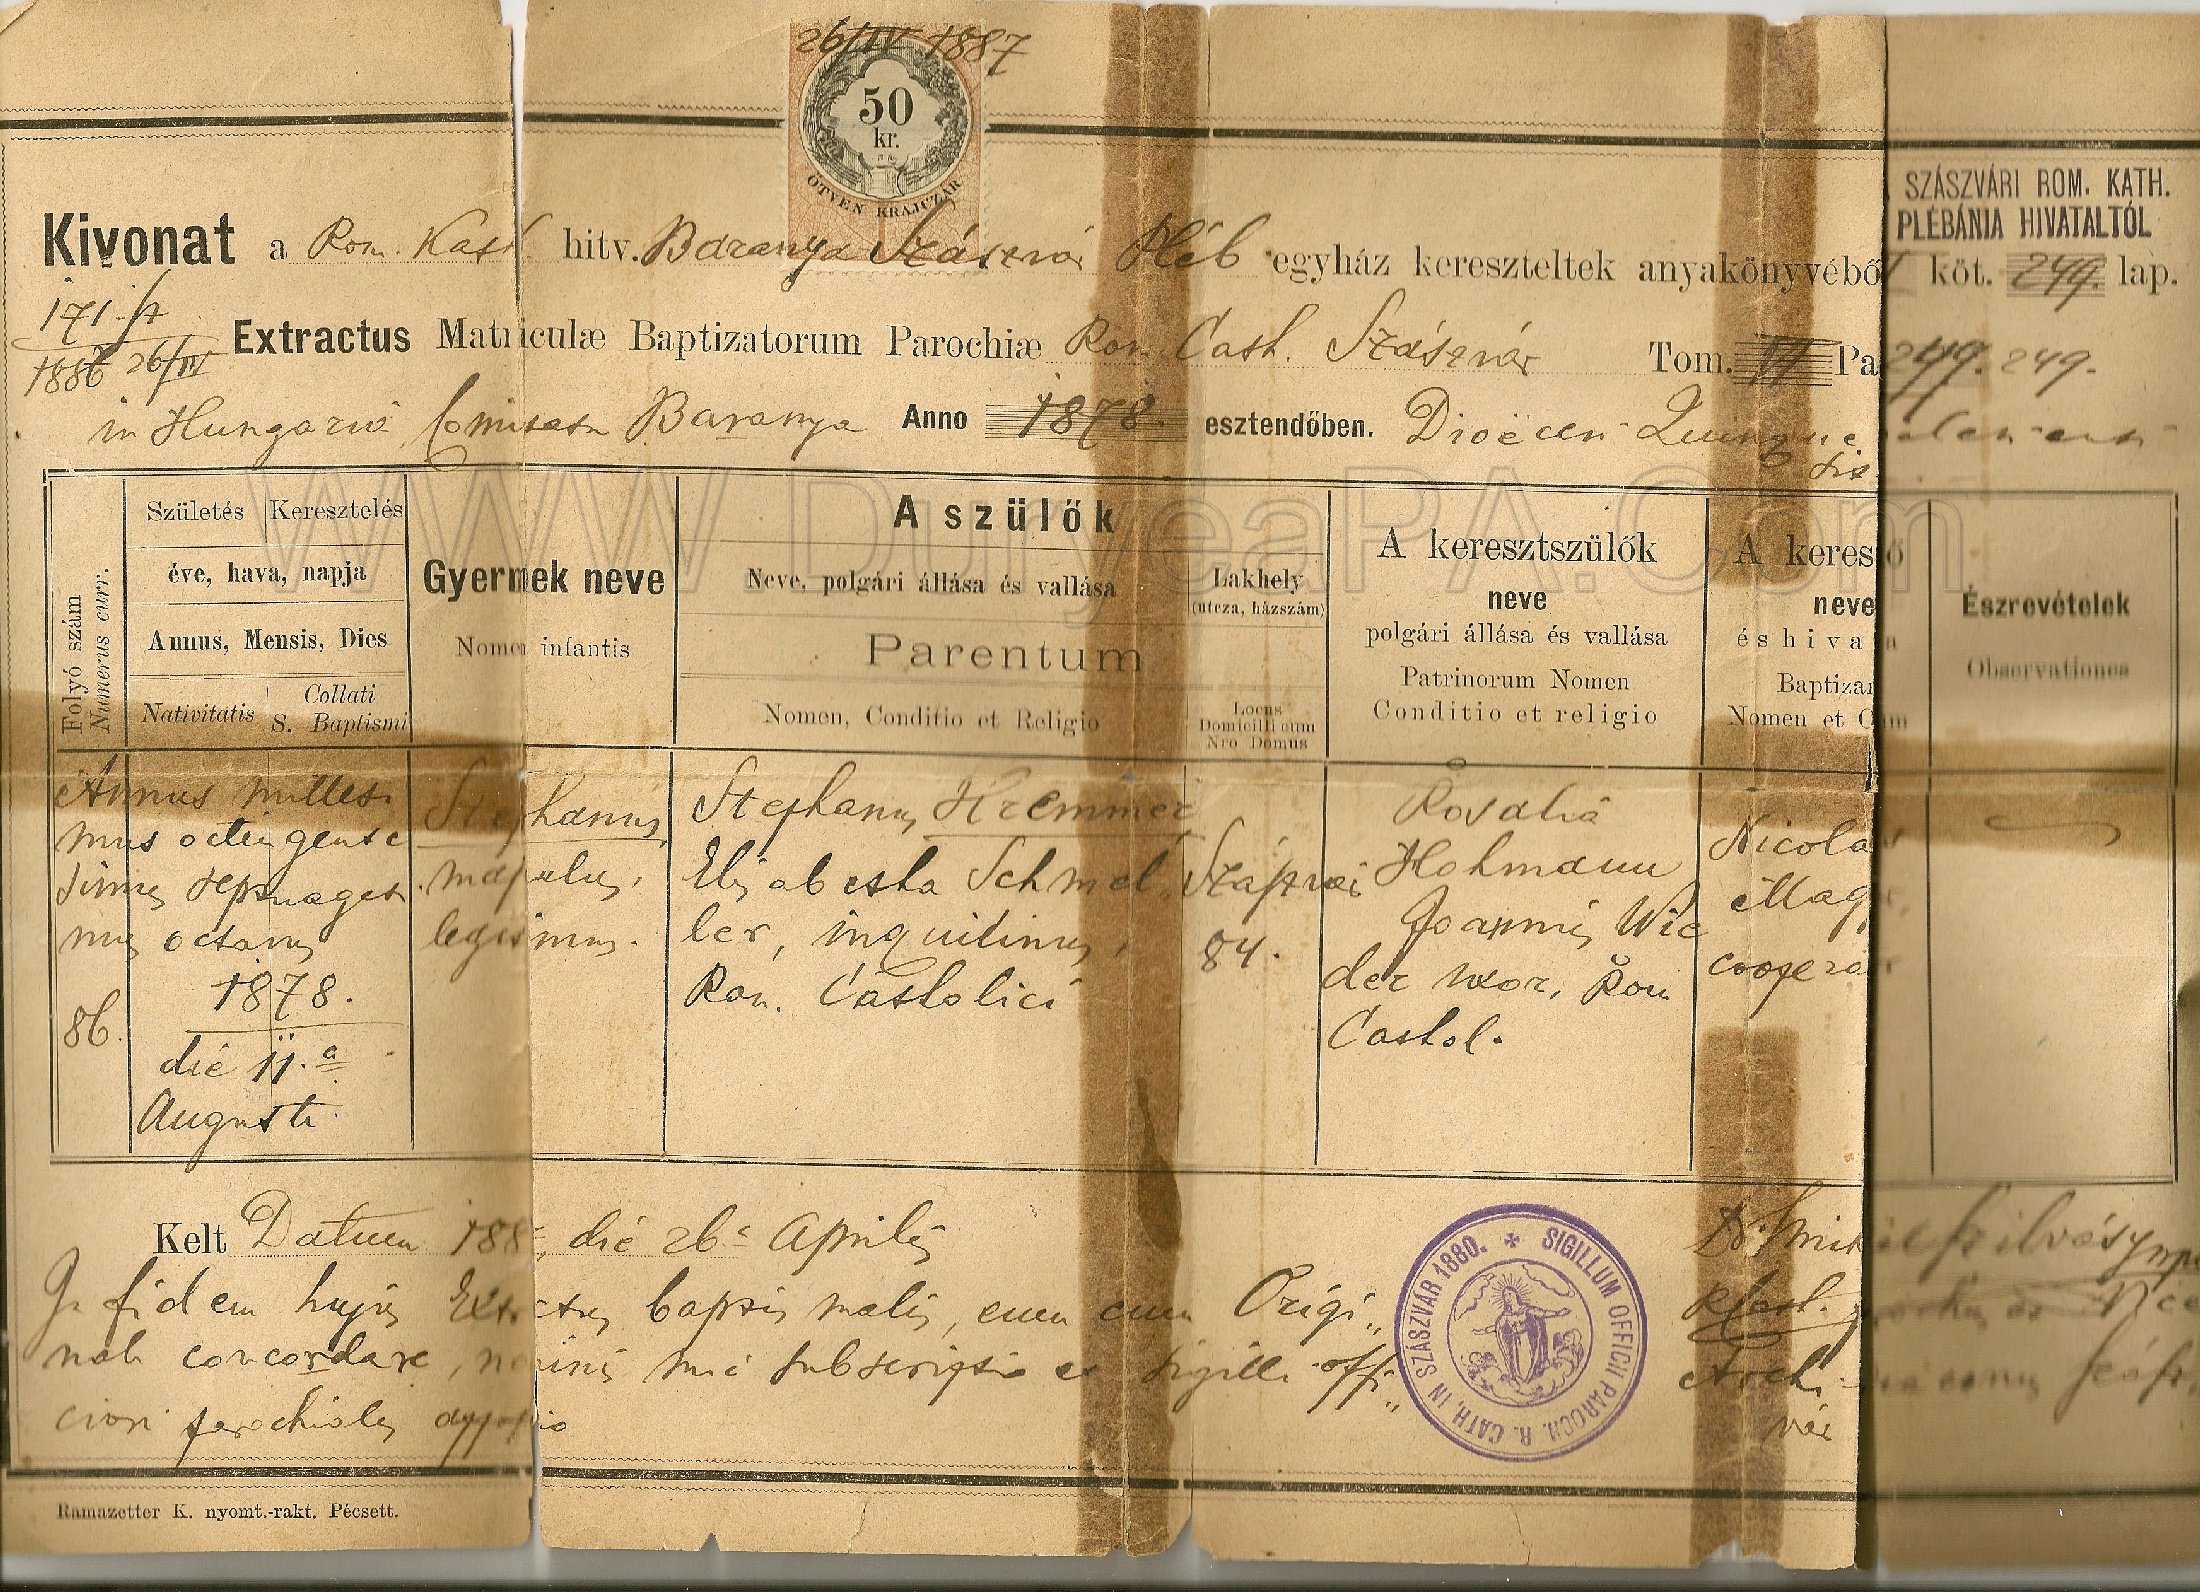 26/IV 1887
50
kr.
ÖTVEN KRAJCZÁR
SZÁSZVÁRI ROM. KATH.
PLÉBÁNIA HIVATALTÓL
Kivonat a Rom. Kath hitv. Baranya Szászvár Pléb egyház kereszteltek anyakönyvéből köt. 249. lap.
171.
1886 26/IV
Extractus Matriculæ Baptizatorum Parochiæ Rom. Cath. Szászvár Tom. VI Pa 249. 249.
in Hungaria, Comitatu Baranya Anno 1878. esztendőben. Dioëcesi Quinque
Folyó szám
Numerus curr.
Születés Keresztelés
éve, hava, napja
Annus, Mensis, Dies
Nativitatis Collati S. Baptismi
Gyermek neve
Nomen infantis
A szülők
Neve, polgári állása és vallása
Parentum
Nomen, Conditio et Religio
Lakhely
(utcza, házszám)
Locus
Domicilli cum
Nro Domus
A keresztszülők
neve
polgári állása és vallása
Patrinorum Nomen
Conditio et religio
A keres ő
neve
és hiva a
Baptizan
Nomen et O
Észrevételek
Observationes
86.
Annus millesi
mus octingente
simus septuagesi
mus octavus
1878.
die 11.a
Augusti
Stephanus
masculus,
legitimus.
Stephanus Kremmer
Elisabetha Schmel
ler, inquilinus,
Rom. Catholici
Szászvár
84.
Rosalia
Hohmann
Joannis Wie
der uxor, Rom
Cathol.
Nicola
Mag
coopera
Kelt Datum 188 , die 26a Aprilis
In fidem hujus Extractus baptismalis, cum cum Origi
nali concordare, nominis mei subscriptio et sigilli offi
ciosi parochialis appositio
SIGILLUM OFFICII PAROCH. R. CATH. IN SZÁSZVÁR 1880.
WWW.DuryeaPA.Com
Ramazetter K. nyomt.-rakt. Pécsett.